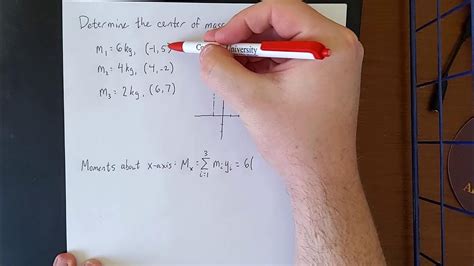 Determine the center of mass
m₁ = 6 kg, (-1, 5)
m₂ = 4 kg, (4, -2)
m₃ = 2 kg, (6, 7)
Moments about x-axis: Mₓ = ∑³ᵢ₌₁ mᵢ yᵢ = 6(